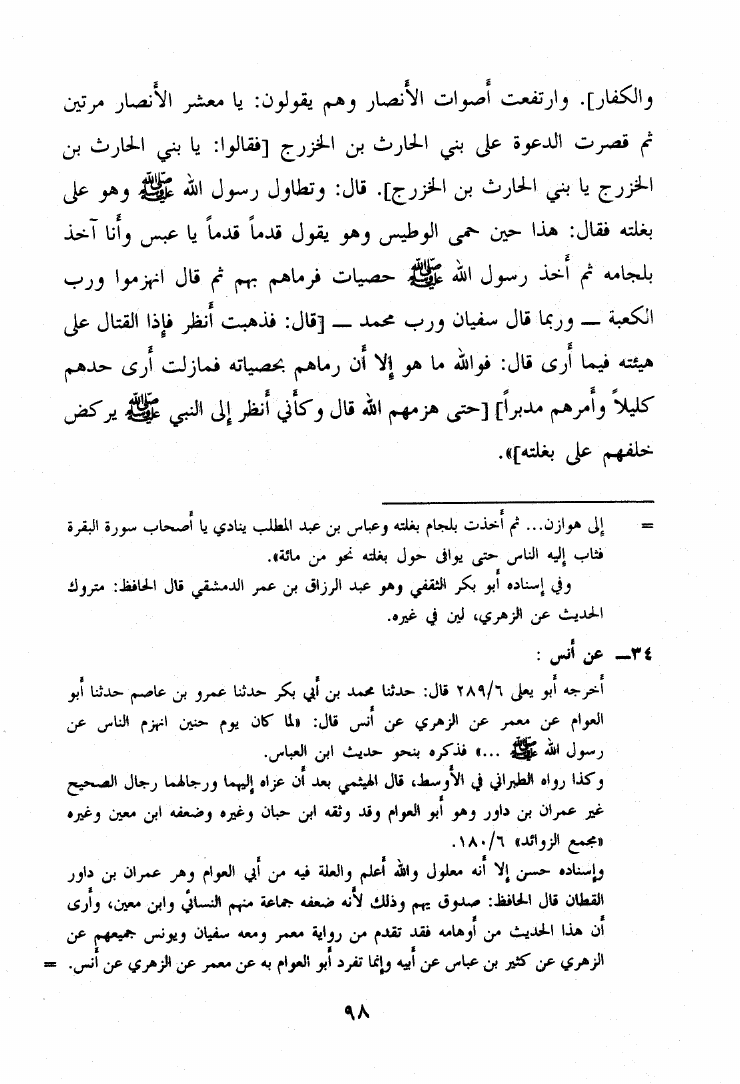 والكفار]. وارتفعت أصوات الأنصار وهم يقولون: يا معشر الأنصار مرتين
ثم قصرت الدعوة على بني الحارث بن الخزرج [فقالوا: يا بني الحارث بن
الخزرج يا بني الحارث بن الخزرج]. قال: وتطاول رسول الله ﷺ وهو على
بغلته فقال: هذا حين حمى الوطيس وهو يقول قدماً قدماً يا عبس وأنا آخذ
بلجامه ثم أخذ رسول الله ﷺ حصيات فرماهم بهم ثم قال انهزموا ورب
الكعبة — وربما قال سفيان ورب محمد — [قال: فذهبت أنظر فإذا القتال على
هيئته فيما أرى قال: فوالله ما هو إلا أن رماهم بحصياته فمازلت أرى حدهم
كليلاً وأمرهم مدبراً] [حتى هزمهم الله قال وكأني أنظر إلى النبي ﷺ يركض
خلفهم على بغلته]».
= إلى هوازن... ثم أخذت بلجام بغلته وعباس بن عبد المطلب ينادي يا أصحاب سورة البقرة
فثاب إليه الناس حتى يوافى حول بغلته نحو من مائة».
وفي إسناده أبو بكر الثقفي وهو عبد الرزاق بن عمر الدمشقي قال الحافظ: متروك
الحديث عن الزهري، لين في غيره.
٣٤— عن أنس :
أخرجه أبو يعلى ٢٨٩/٦ قال: حدثنا محمد بن أبي بكر حدثنا عمرو بن عاصم حدثنا أبو
العوام عن معمر عن الزهري عن أنس قال: «لما كان يوم حنين انهزم الناس عن
رسول الله ﷺ ...» فذكره بنحو حديث ابن العباس.
وكذا رواه الطبراني في الأوسط، قال الهيثمي بعد أن عزاه إليهما ورجالهما رجال الصحيح
غير عمران بن داور وهو أبو العوام وقد وثقه ابن حبان وغيره وضعفه ابن معين وغيره
«مجمع الزوائد» ١٨٠/٦.
وإسناده حسن إلا أنه معلول والله أعلم والعلة فيه من أبي العوام وهر عمران بن داور
القطان قال الحافظ: صدوق يهم وذلك لأنه ضعفه جماعة منهم النسائي وابن معين، وأرى
أن هذا الحديث من أوهامه فقد تقدم من رواية معمر ومعه سفيان ويونس جميعهم عن
الزهري عن كثير بن عباس عن أبيه وإنما تفرد أبو العوام به عن معمر عن الزهري عن أنس. =
٩٨